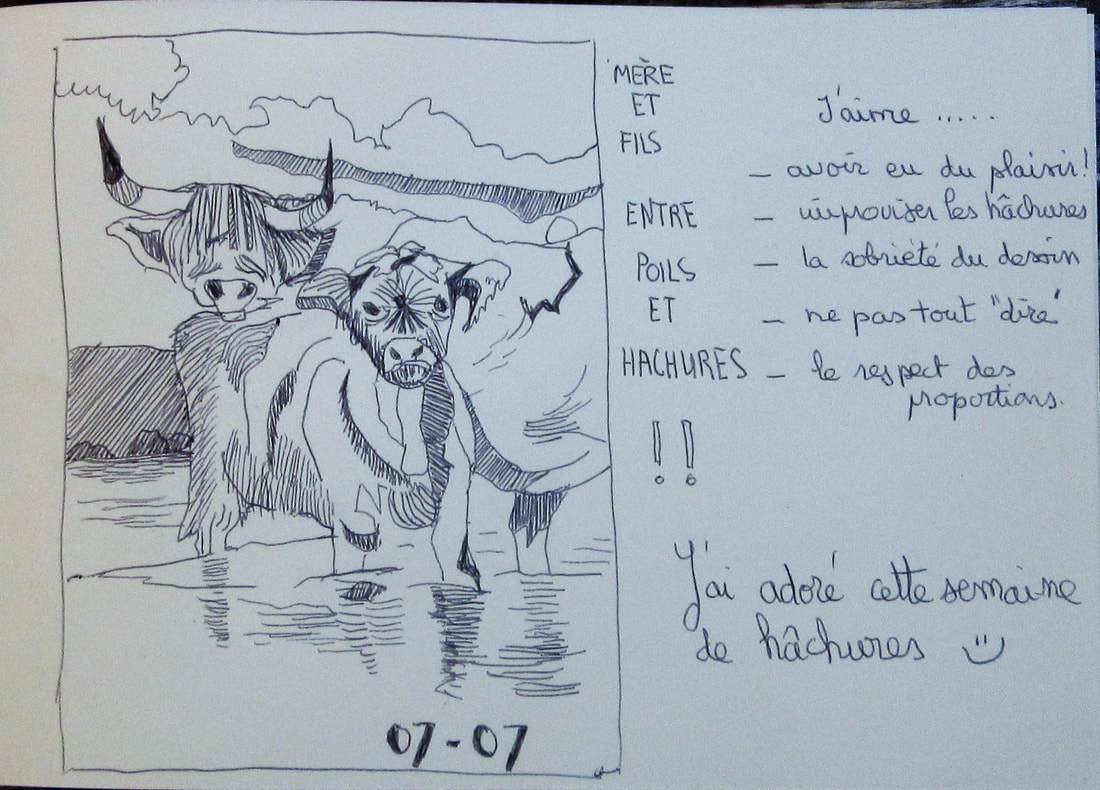 MÈRE
ET
FILS
ENTRE
POILS
ET
HACHURES
!!
J'aime .....
– avoir eu du plaisir!
– improviser les hâchures
– la sobriété du dessin
– ne pas tout "dire"
– le respect des
proportions.
J'ai adoré cette semaine
de hâchures
07-07